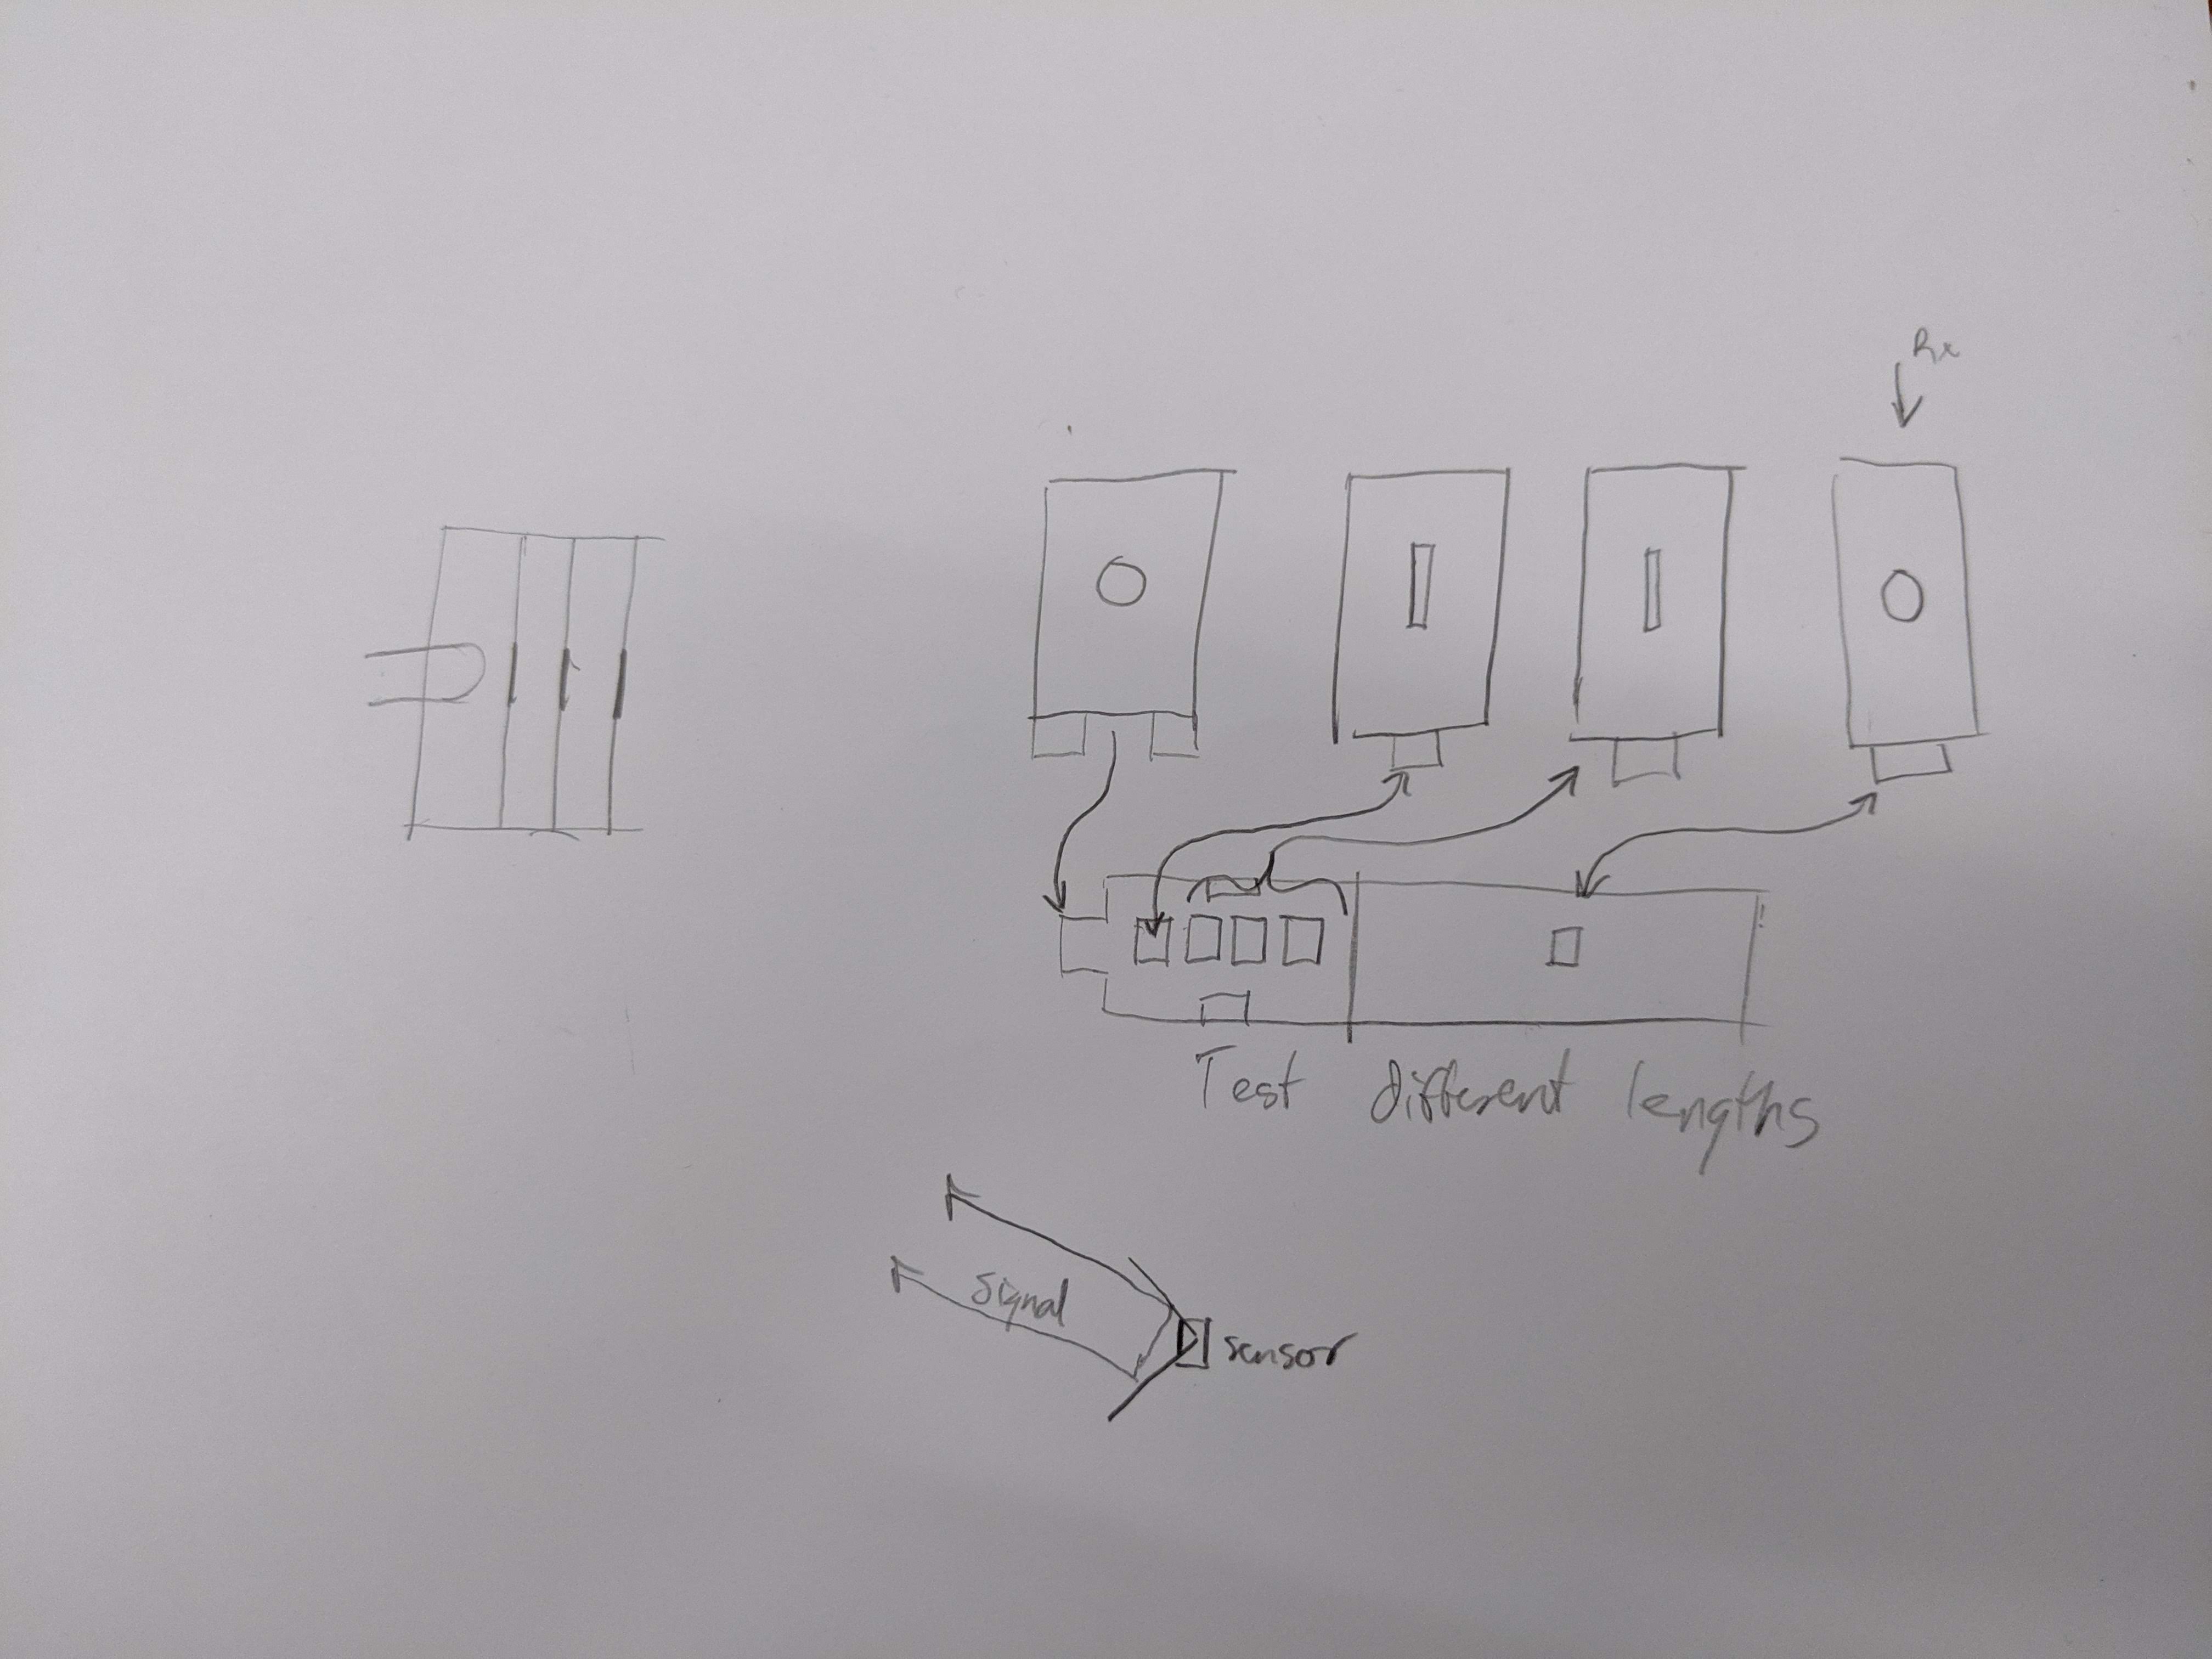 Rx
Test different lengths
Signal
sensor